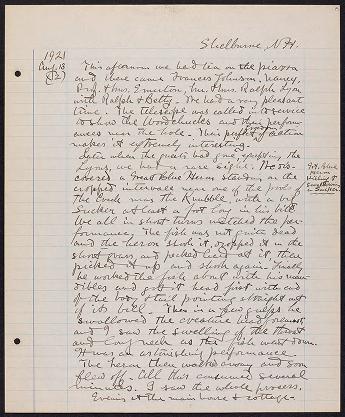 Shelburne, N.H.
1921
Aug. 13
(2)
This afternoon we had tea on the piazza
and there came Frances Johnson, Nancy,
Prof. & Mrs. Emerton, Mr. & Mrs. Ralph Lyon
with Ralph & Betty. We had a very pleasant
time. The telescope was called into service
to show the Woodchucks and their perform-
ances near the hole. Their of action
makes it extremely interesting.
Later when the guests had gone, excepting the
Lyons, we had a rare sight. We dis-
covered a Great Blue Heron standing in the
cropped intervale near one of the pools of
the brook near the with a big
Sucker at least a foot long in his bill.
We all in short turns watched the per-
formance. The fish was not quite dead
and the heron shook it, dropped it in the
short grass, and pecked hard at it, then
picked it up and shook again. Finally
he worked the fish about with his man-
dibles and got it head first with end
of the body & tail pointing straight out
of its bill. Then in a few gulps he
swallowed the creature head foremost
and I saw the swelling of the throat
and long neck as the fish went down.
It was an astonishing performance.
The heron then walked away and soon
flew off. All this consumed several
minutes. I saw the whole process.
Evening at the main house & cottage.
Gt. Blue
Heron
killing &
swallowing
a Sucker.